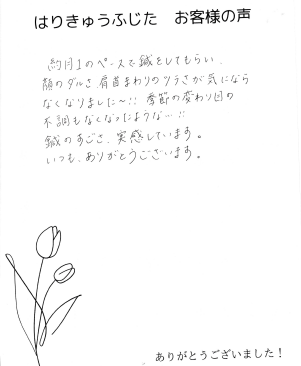 はりきゅうふじた　お客様の声
約月1のペースで鍼をしてもらい、
顔のダルさ、肩首まわりのツラさが気になら
なくなりました〜!! 季節の変わり目の
不調もなくなったような…!!
鍼のすごさ、実感しています。
いつも、ありがとうございます。
ありがとうございました！